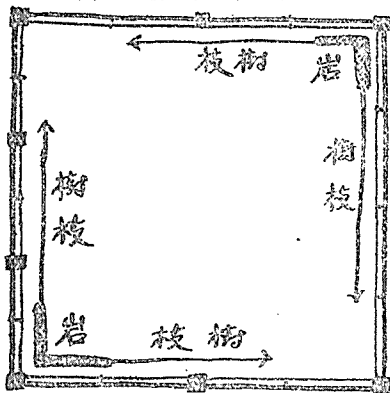 枝樹
岩
樹枝
樹枝
岩
枝樹